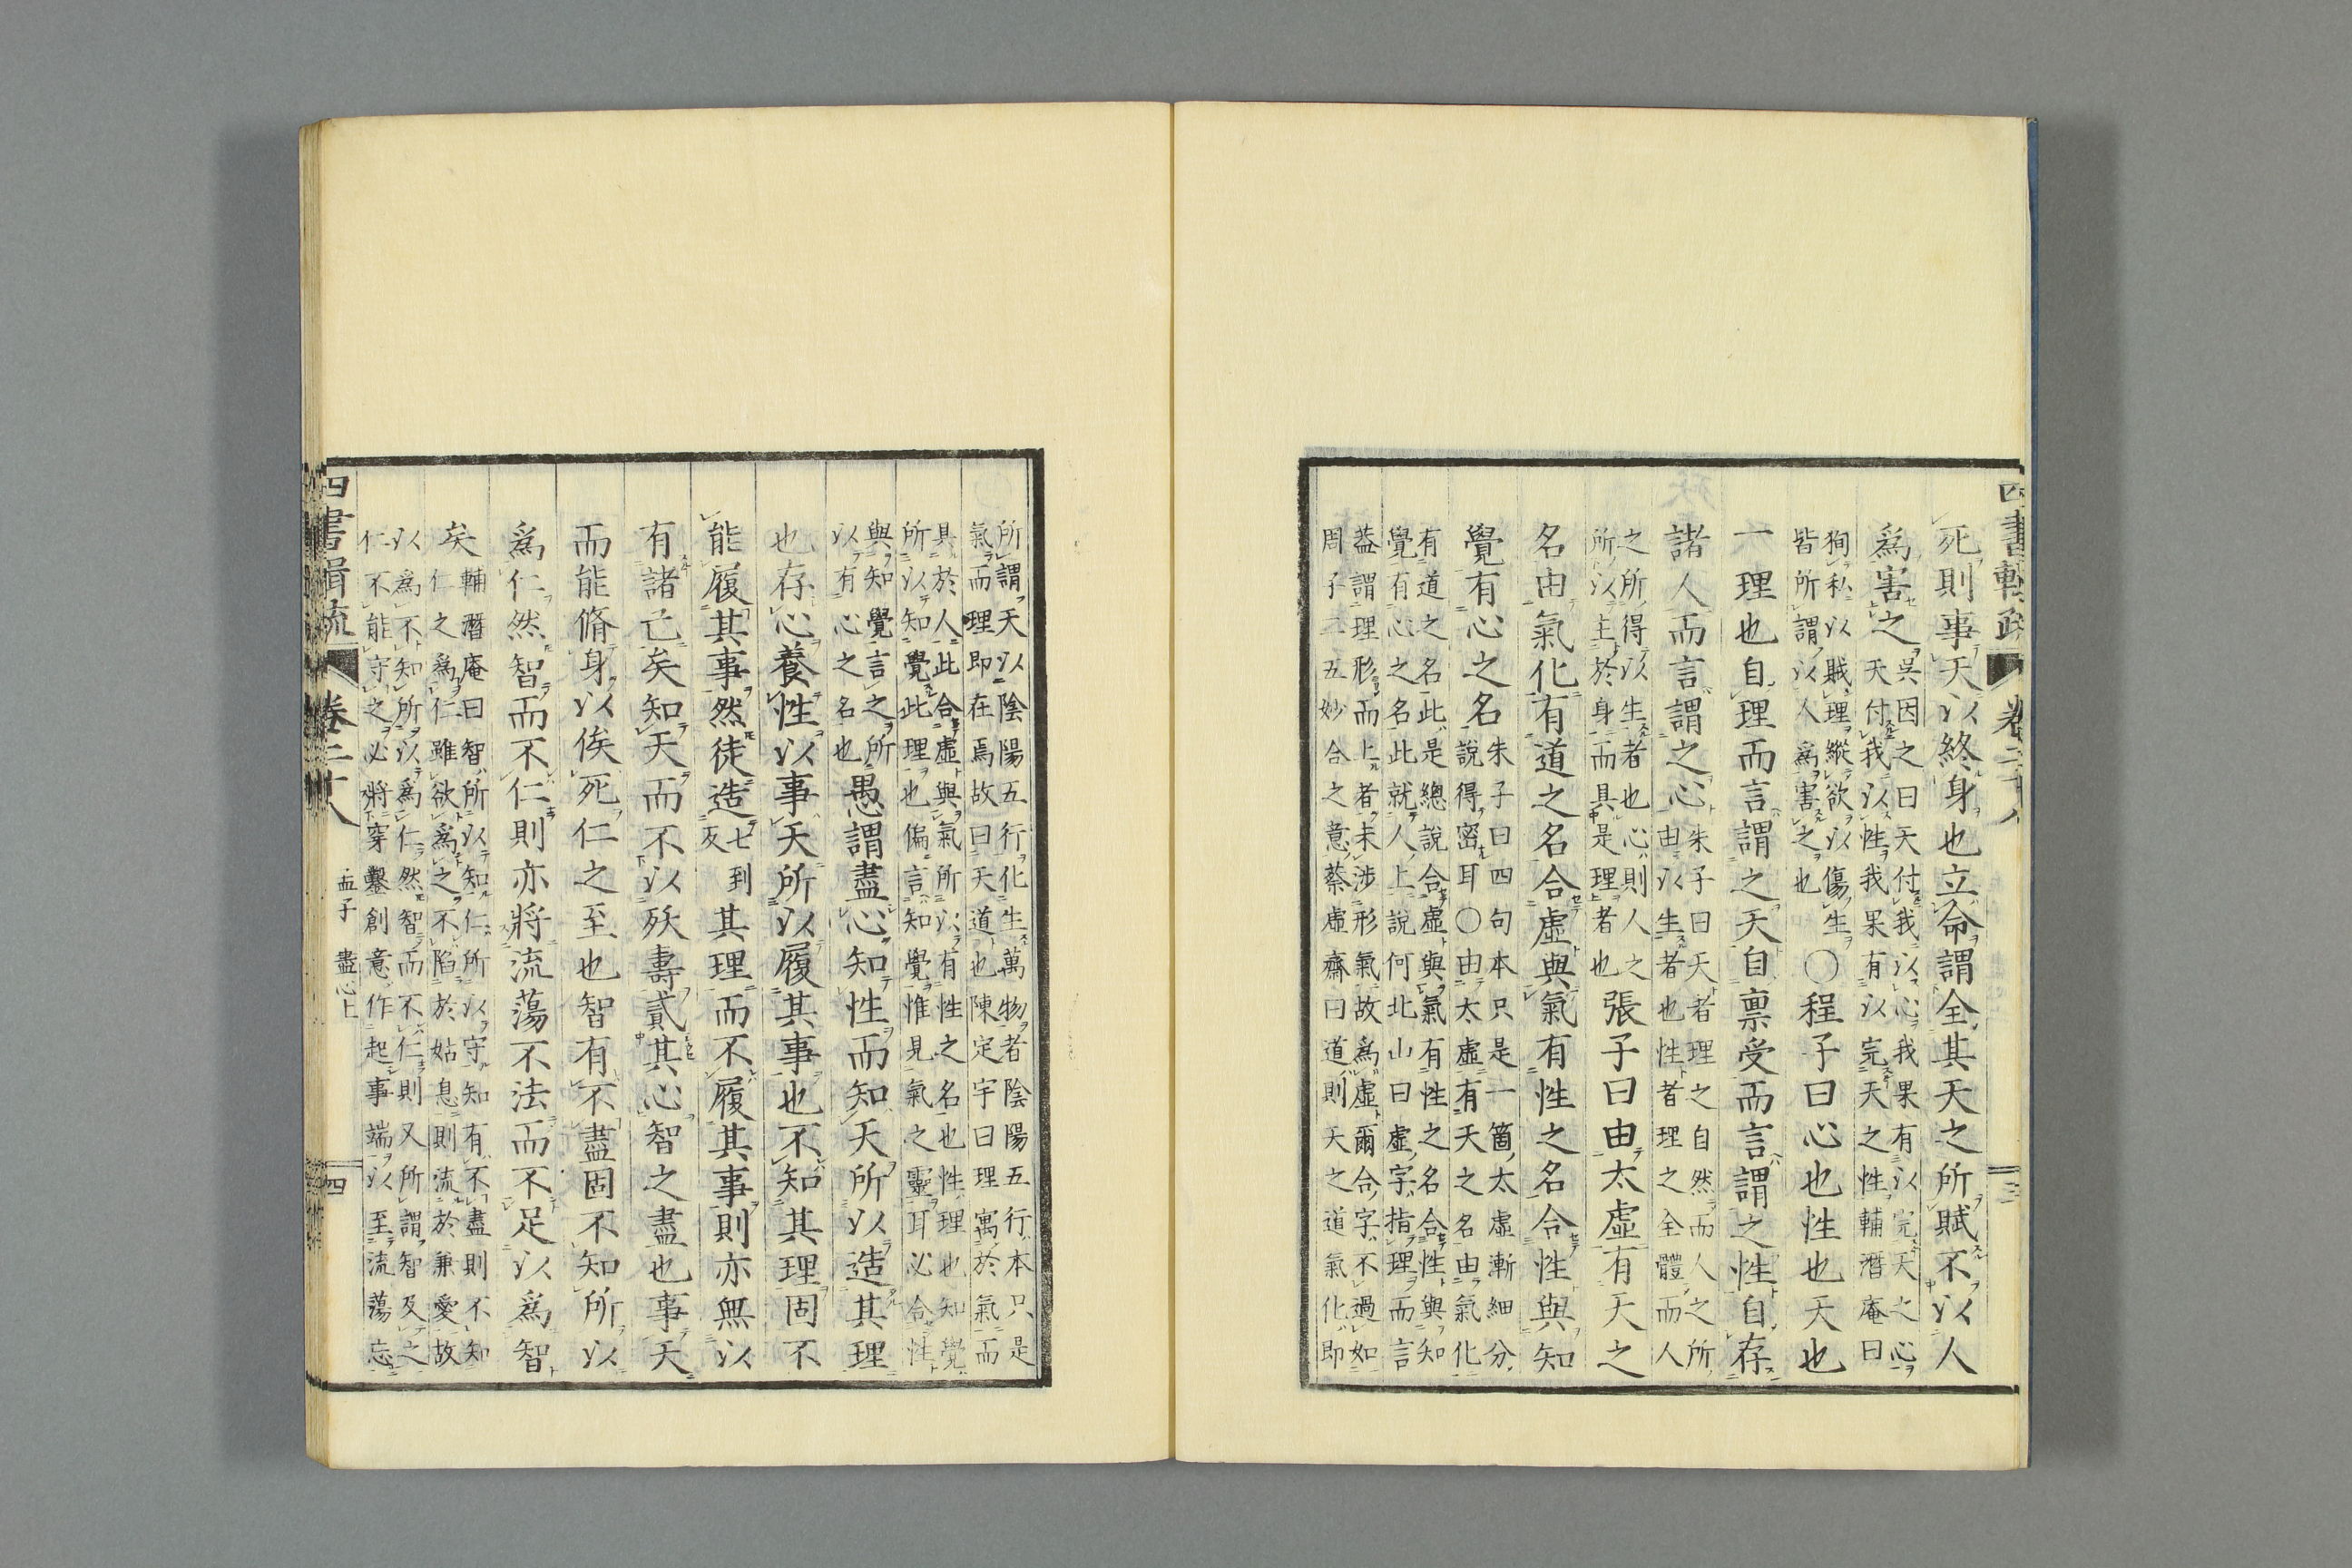 死則事天以終身也立命謂全其天之所賦不以人
爲害之
吳因之曰天付我以心我果有以完天之心
天付我以性我果有以完天之性輔潛庵曰
狥私以賊理縱欲以傷生
皆所謂以人爲害之也
○程子曰心也性也天也
一理也自理而言謂之天自稟受而言謂之性自存
諸人而言謂之心
朱子曰天者理之自然而人之所
由以生者也性者理之全體而人
之所得以生者也心則人之
所以主於身而具是理者也
張子曰由太虛有天之
名由氣化有道之名合虛與氣有性之名合性與知
覺有心之名
朱子曰四句本只是一箇太虛漸細分
說得密耳○由太虛有天之名由氣化
有道之名此是總說合虛與氣有性之名合性與知
覺有心之名此就人上說何北山曰虛字指理而言
葢謂理形而上者未涉形氣故爲虛爾合字不過如
周子二五妙合之意蔡虛齋曰道則天之道氣化即
四書輯疏 卷二十八 三
所謂天以陰陽五行化生萬物者陰陽五行本只是
氣而理即在焉故曰天道也陳定宇曰理寓於氣而
具於人此合虛與氣所以有性之名也性理也知覺
所以知覺此理也偏言知覺惟見氣之靈耳必合性
與知覺言之所
以有心之名也
愚謂盡心知性而知天所以造其理
也存心養性以事天所以履其事也不知其理固不
能履其事然徒造
七到
反
其理而不履其事則亦無以
有諸己矣知天而不以殀壽貳其心智之盡也事天
而能脩身以俟死仁之至也智有不盡固不知所以
爲仁然智而不仁則亦將流蕩不法而不足以爲智
矣
輔潛庵曰智所以知仁所以守知有不盡則不知
仁之爲仁雖欲爲之不陷於姑息則流於兼愛故
以爲不知所以爲仁然智而不仁則又所謂智及之
仁不能守之必將穿鑿創意作起事端以至流蕩忘
四書輯疏 卷二十八 孟子 盡心上 四